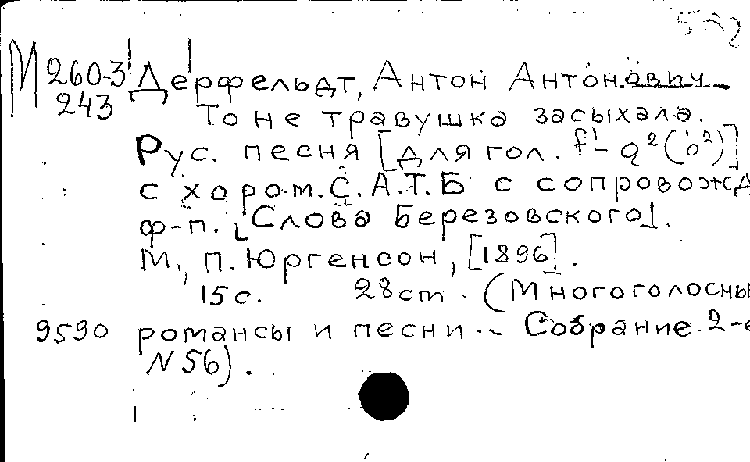 М 260-3 Дерфельдт, Антон Антонович
243 То не травушка засыхала.
Рус. песня [для гол. f¹- g²(a²)]
с хором. С. А. Т. Б с сопровожд
ф-п. [Слова Березовского].
М., П. Юргенсон, [1896].
15 с. 28 cm. (Многоголосны
9590 романсы и песни.- Собрание 2-е
N 56).